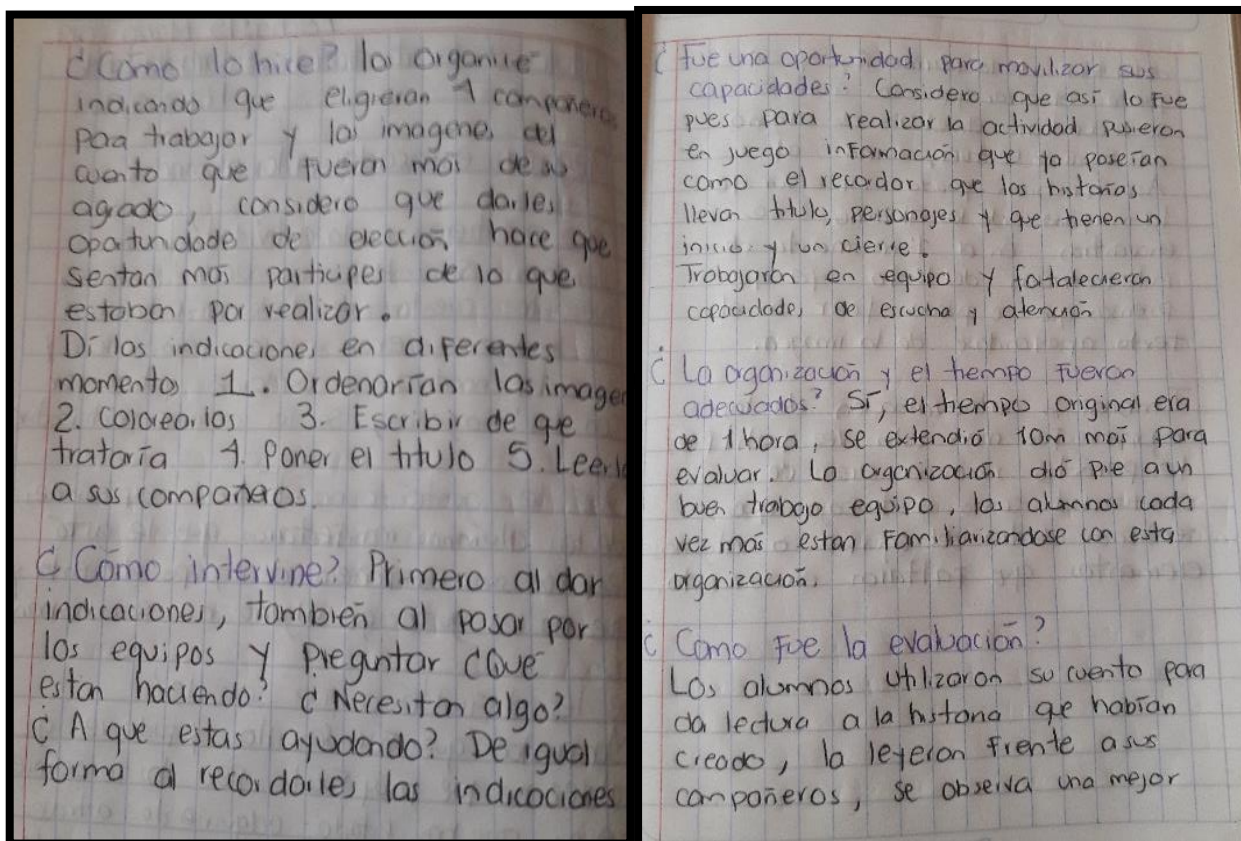 ¿Cómo lo hice? los organicé
indicando que eligieran 1 compañero
para trabajar y las imagenes del
cuento que fueran más de su
agrado, considero que darles
oportunidade de elección, hace que
sentan más participes de lo que
estaban por realizar.
Dí las indicaciones en diferentes
momentos 1. Ordenarían las imagen
2. Colorearlos 3. Escribir de que
trataría 4. Poner el título 5. Leerlo
a sus compañeros.
¿Cómo intervine? Primero al dar
indicaciones, también al pasar por
los equipos y preguntar ¿Que
estan haciendo? ¿Necesitan algo?
¿A que estas ayudando? De igual
forma al recordarles las indicaciones
¿Fue una oportunidad para movilizar sus
capacidades? Considero que así lo fue
pues para realizar la actividad pusieron
en juego información que ya poseían
como el recordar que las historias
llevan título, personajes y que tienen un
inicio y un cierre.
Trabajaron en equipo y fortalecieron
capacidades de escucha y atención
¿La organización y el tiempo fueron
adecuados? Sí, el tiempo original era
de 1 hora, se extendió 10m más para
evaluar. La organización dió pie a un
buen trabajo equipo, los alumnos cada
vez más estan familiarizandose con esta
organización.
¿Como fue la evaluación?
Los alumnos utilizaron su cuento para
da lectura a la historia que habían
creado, la leyeron frente a sus
compañeros, se observa una mejor